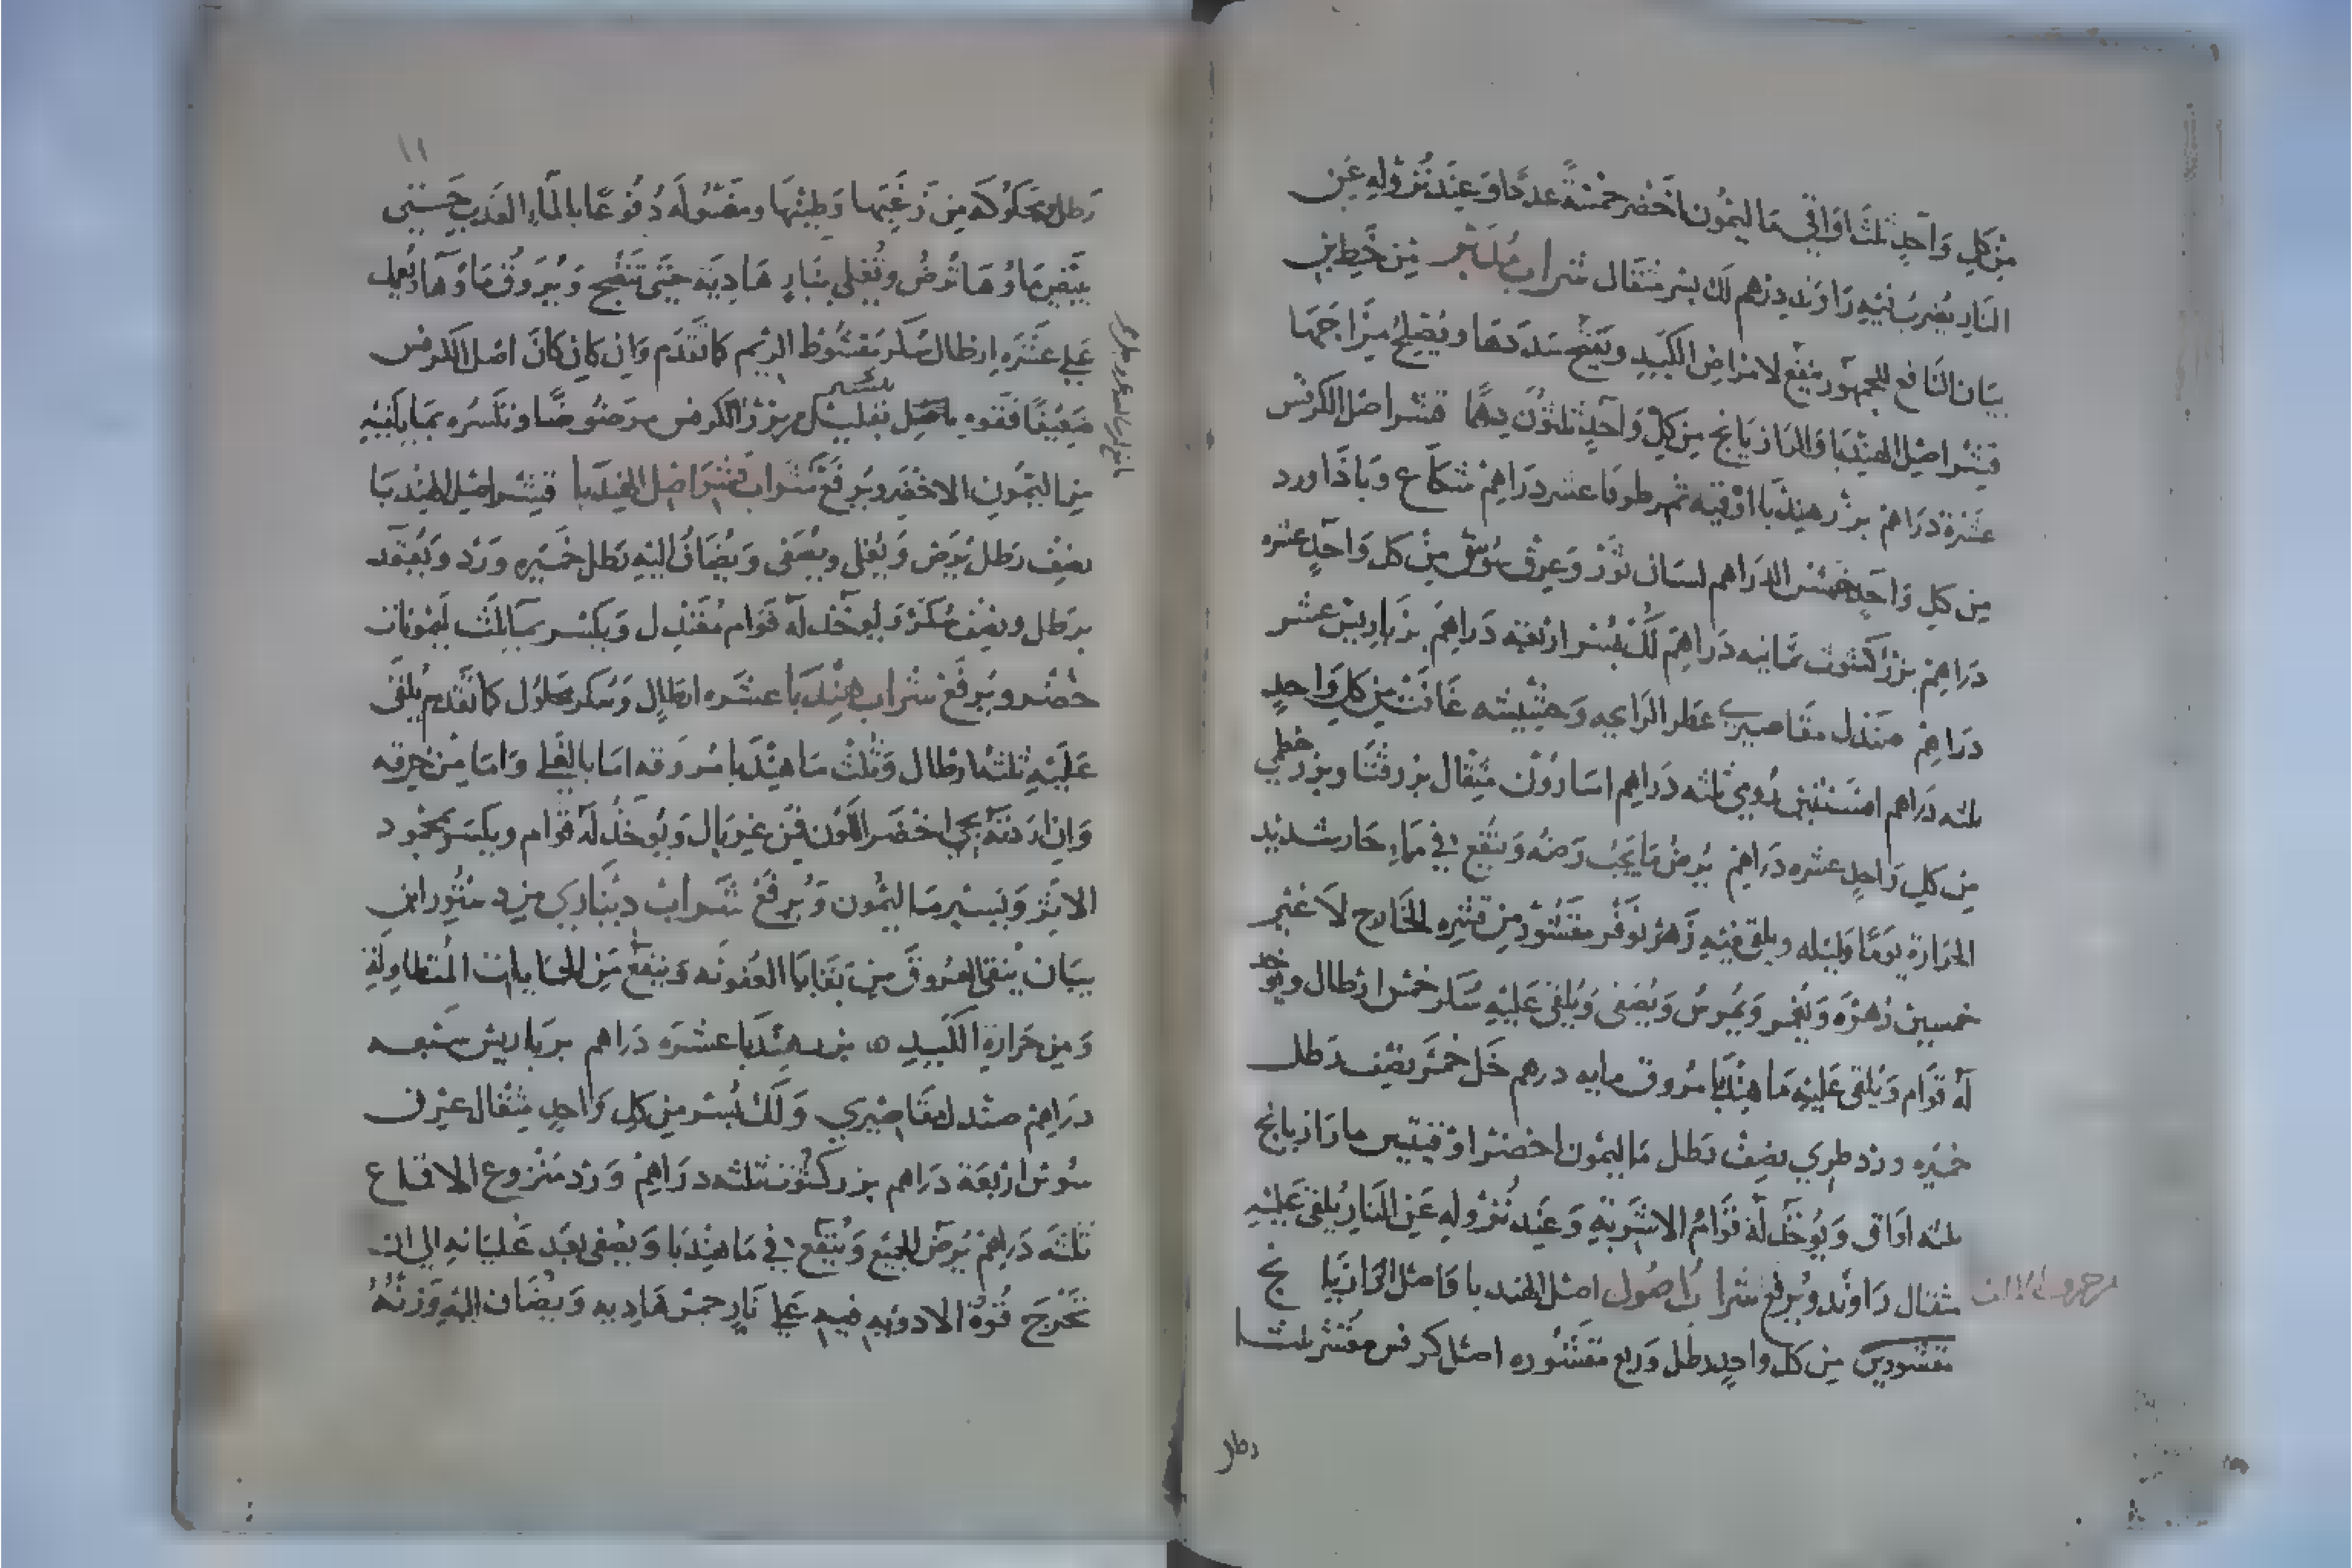 من كل واحد ثلث اواقي ما ليمون اخضر خمسة عددا وعند نزوله عن
النار يضرب فيه راوند درهم لك بسر مثقال شراب مدبر من خط ابن
بيان النافع للجمهور منفع لامراض الكبد ويفتح سددها ويصلح مزاجها
قشر اصل الهندبا والرازيانج من كل واحد ثلثون درهما قشر اصل الكرفس
عشرة دراهم بزر هندبا اوقيه ثمر طرفا عشر دراهم شكاع وباذاورد
من كل واحد خمس الدراهم لسان ثور وعرق سوس من كل واحد عشره
دراهم بزر كشوث ثمانيه دراهم لك بسر اربعه دراهم برباريس عشر
دراهم صندل مقاصيري عطر الرايحه وحشيشه غافت من كل واحد
ثلثه دراهم افسنتين رومي ثلثه دراهم اسارون مثقال بزر قثا وبزر خطمي
من كل واحد عشره دراهم يرض ما يجب رضه وينقع في ماء حار شديد
الحرارة يوما وليله ويلقى فيه زهر نوفر مقشور من قشره الخارج لا غير
خمسين زهره ويغمر ويمرس ويصفى ويلقى عليه سكر خمس ارطال ويوخد
له قوام ويلقى عليه ما هندبا مروق مايه درهم خل خمر نصف رطل
خميره ورد طري نصف رطل ما ليمون اخضر اوقيتين ما رازيانج
ثلثه اواق ويوخد له قوام الاشربه وعند نزوله عن النار يلقى عليه
مثقال راوند ويرفع شراب اصول اصل الهندبا واصل الرازيا نج
مقشورين من كل واحد رطل وربع مقشوره اصل كرفس مقشر ثلثا
رطل
١١
رطل محكوكه من زغبها وطينها ومغسوله دفوعا بالماء العذب حتى
يبقى ماوها ترض وتغلى بنار هاديه حتى تنضج ويروق ماوها ويعمل
على عشره ارطال سكر مقشوط الريم كما تقدم وان كان كان اصل الكرفس
ضعيفا فقوه بقليل بزر الكرفس مرضوضا ونكسره بما يكفيه
من اليمون الاخضر ويرفع شراب قشر اصل الهندبا قشر اصل الهندبا
نصف رطل يرض ويغلى ويسقى ويضاف اليه رطل خميره ورد ويعقد
برطل ونصف سكر ويوخد له قوام معتدل ويكسر بثلث ليمونات
خضر ويرفع شراب هندبا عشره ارطال وسكر محلول كما تقدم يلقى
عليه ثلثه ارطال وثلث ما هندبا مروقه اما بالغلي واما من خرقه
وان اردته يجي اخضر اللون فن غربال ويوخد له قوام ويكسر بحمود
الاترج ويسير ما ليمون ويرفع شراب ديناري من دستور ابن
بيان ينقى العروق من بقايا العفونه وينفع من الحميات المتطاوله
ومن حرارة الكبد ه بزر هندبا عشره دراهم برباريس سبعه
دراهم صندل مقاصيري ولك بسر من كل واحد مثقال عرق
سوس اربعة دراهم بزر كشوث ثلثه دراهم ورد منزوع الاقماع
ثلثه دراهم يرض الجميع وينقع في ما هندبا ويصفى بعد غليانه الى ان
تخرج قوة الادويه فيه على نار حمر هاديه ويضاف اليه وزنه